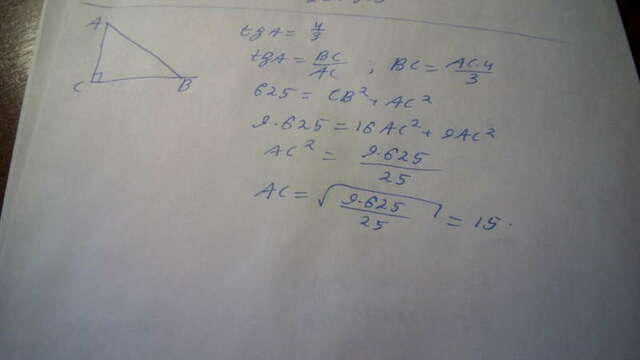 A
C
B
tgA = 4/3
tgA = BC/AC ; BC = AC·4/3
625 = CB² + AC²
9·625 = 16AC² + 9AC²
AC² = 9·625/25
AC = √(9·625/25) = 15.